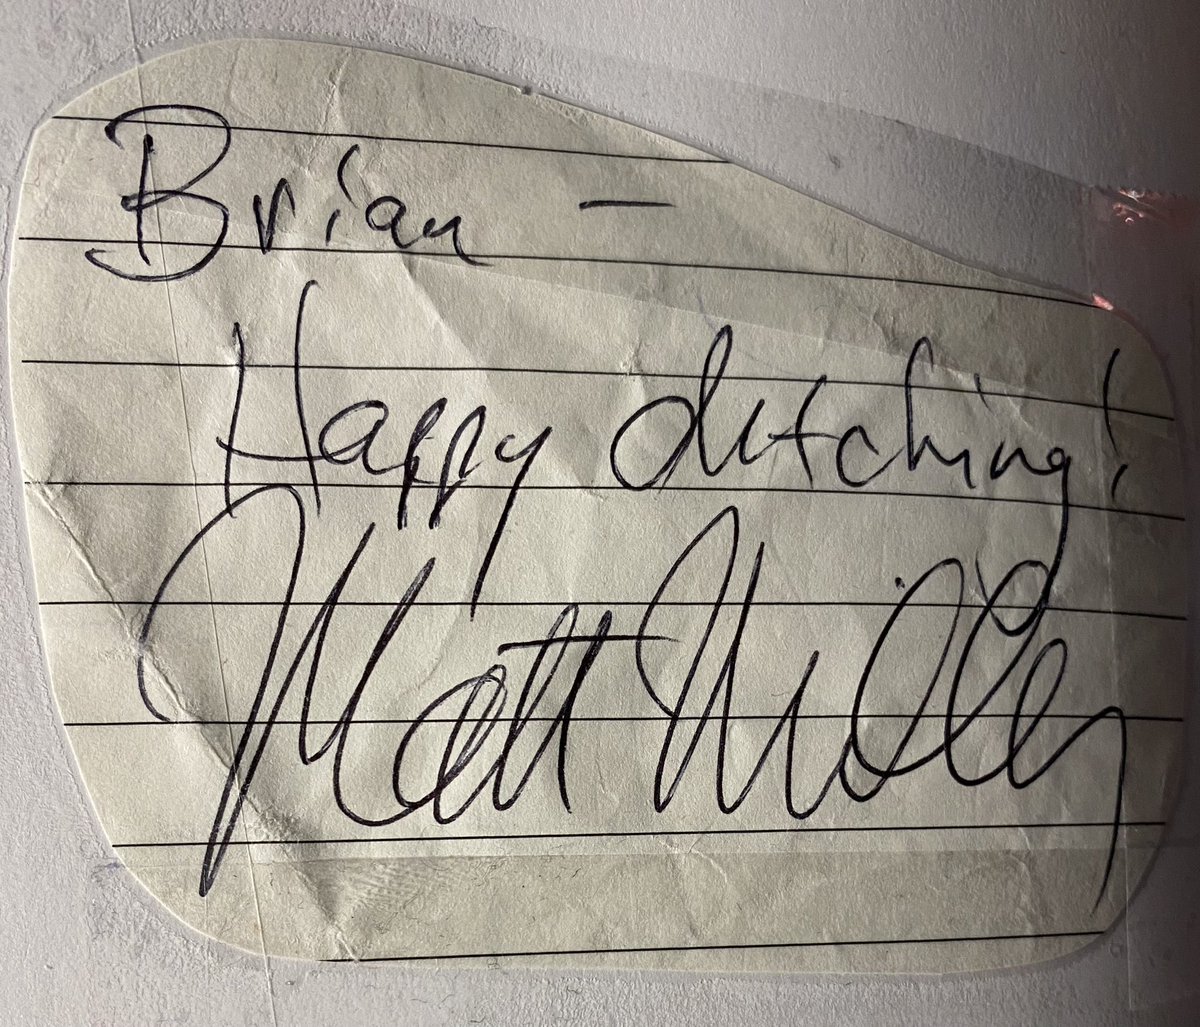 Brian –
Happy dutching!
Matt Miller